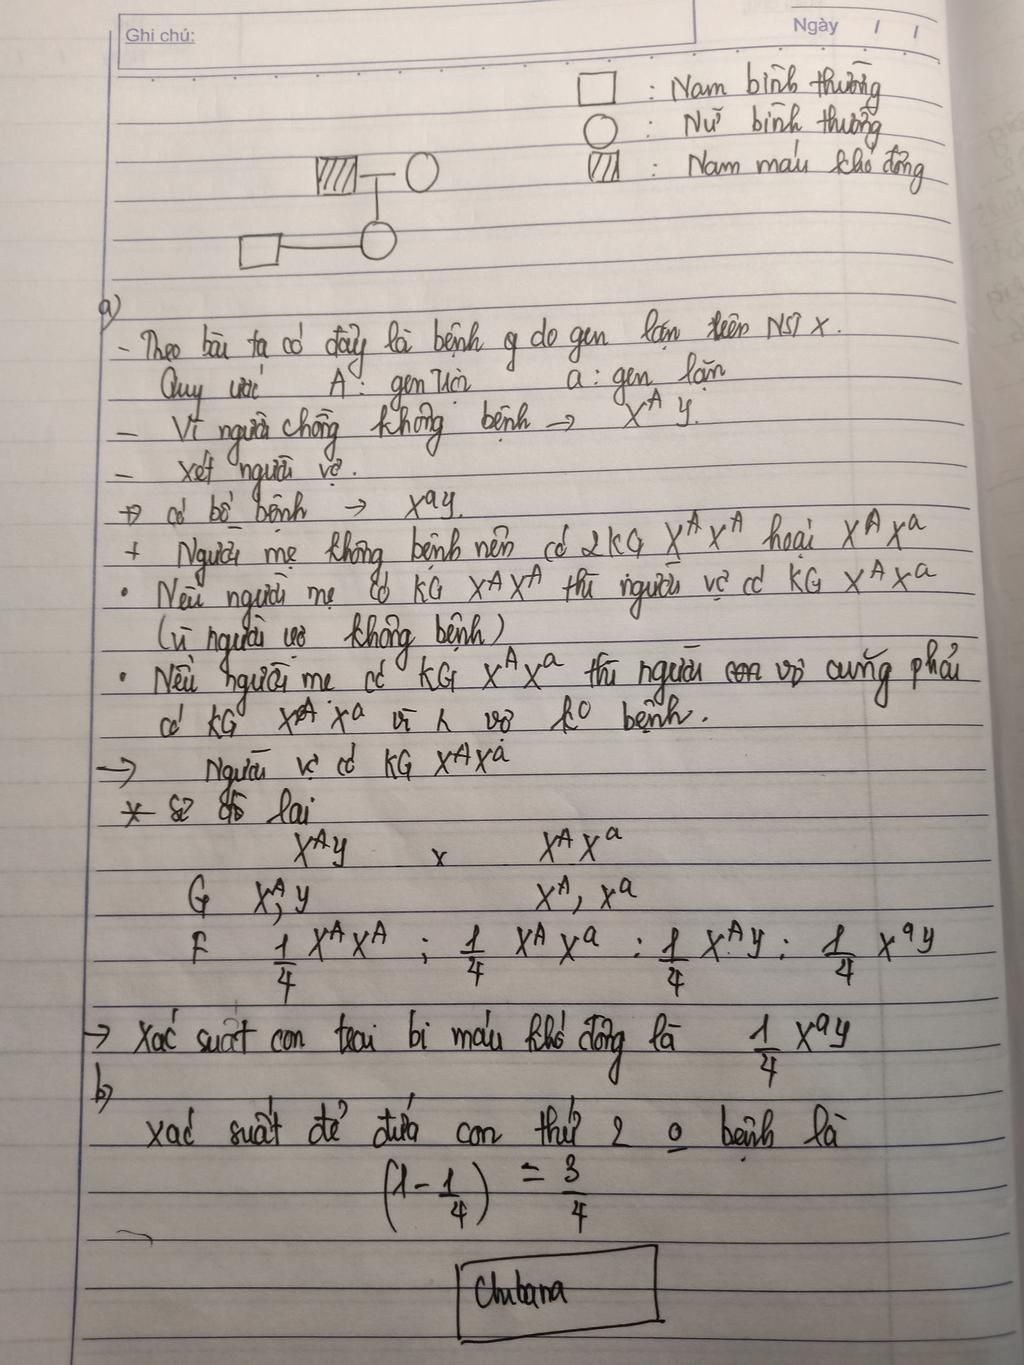 Ghi chú:
Ngày / /
: Nam bình thường
: Nữ bình thường
: Nam máu khó đông
a)
- Theo bài ta có đây là bệnh q do gen lặn trên NST X.
Quy ước A: gen trội a: gen lặn
- Vì người chồng không bệnh → X^A Y.
- xét người vợ.
+ có bố bệnh → X^a Y.
+ Người mẹ không bệnh nên có 2 KG X^A X^A hoặc X^A X^a
• Nếu người mẹ có KG X^A X^A thì người vợ có KG X^A X^a
(vì người vợ không bệnh)
• Nếu người mẹ có KG X^A X^a thì người con vợ cũng phải
có KG X^A X^a vì vợ ko bệnh.
→ Người vợ có KG X^A X^a
* sơ đồ lai
X^A Y x X^A X^a
G X^A, Y X^A, X^a
F 1/4 X^A X^A ; 1/4 X^A X^a : 1/4 X^A Y : 1/4 X^a Y
→ Xác suất con trai bị máu khó đông là 1/4 X^a Y
b)
Xác suất để đứa con thứ 2 o bệnh là
(1 - 1/4) = 3/4
Chibana